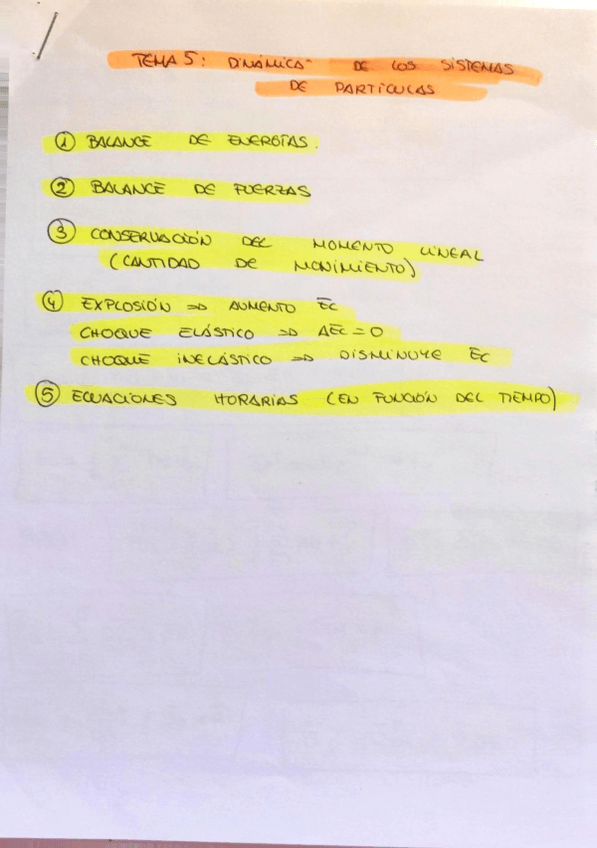 TEMA 5: DINÁMICA DE LOS SISTEMAS
DE PARTÍCULAS
① BALANCE DE ENERGÍAS.
② BALANCE DE FUERZAS
③ CONSERVACIÓN DEL MOMENTO LINEAL
(CANTIDAD DE MOVIMIENTO)
④ EXPLOSIÓN => AUMENTO Ec
CHOQUE ELÁSTICO => ΔEc = 0
CHOQUE INELÁSTICO => DISMINUYE Ec
⑤ ECUACIONES HORARIAS (EN FUNCIÓN DEL TIEMPO)